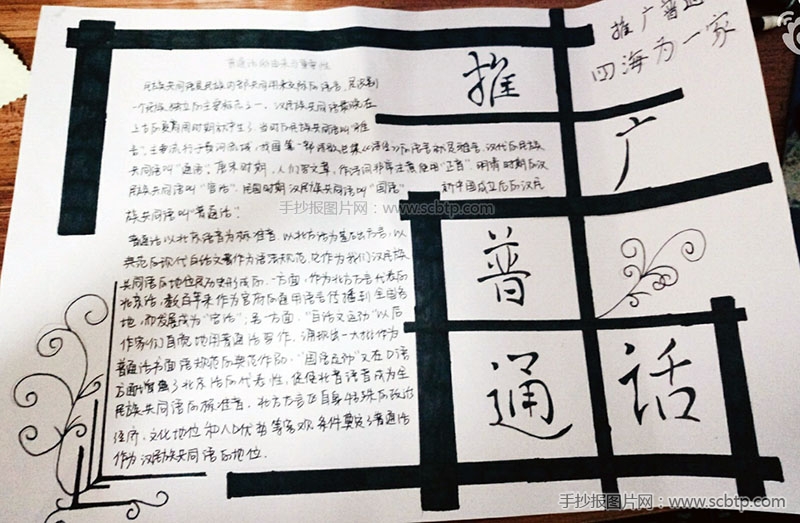 普通话的由来与重要性
民族共同语是民族内部共同用来交际的语言，是识别
一个民族独立的主要标志之一。汉民族共同语最晚在
上古的夏商周时期就产生了，当时的民族共同语叫"雅
言"，主要流行于黄河流域，我国第一部诗歌总集《诗经》的语言就是雅言。汉代的民族
共同语叫"通语"。唐宋时期，人们写文章、作诗词非常注意使用"正音"。明清时期的汉
民族共同语叫"官话"。民国时期汉民族共同语叫"国语" 新中国成立后的汉民
族共同语叫"普通话"。
普通话以北京语音为标准音，以北方话为基础方言，以
典范的现代白话文著作为语法规范。它作为我们汉民族
共同语的地位是历史形成的。一方面，作为北方方言代表的
北京话，数百年来作为官府的通用语言传播到全国各
地，而发展成为"官话"；另一方面，"白话文运动"以后
作家们自觉地用普通话写作，涌现出一大批作为
普通话书面语规范的典范作品。"国语运动"又在口语
方面增强了北京话的代表性，促使北京语音成为全
民族共同语的标准音。北方方言区自身特殊的政治
经济、文化地位和人口优势等客观条件奠定了普通话
作为汉民族共同语的地位。
推
广
普
通
话
推广普通
四海为一家
手抄报图片网：www.scbtp.com
手抄报图片网：www.scbtp.com